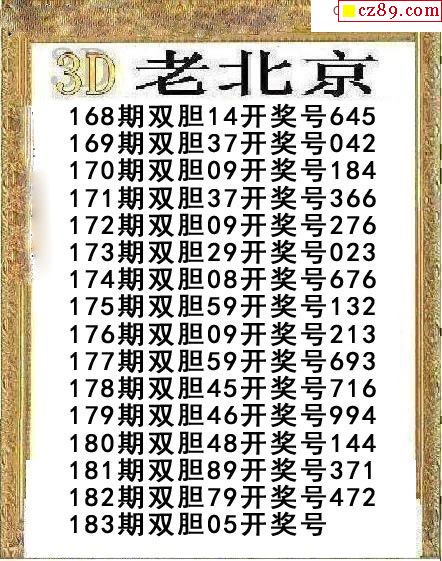 cz89.com
3D 老北京
168期双胆14开奖号645
169期双胆37开奖号042
170期双胆09开奖号184
171期双胆37开奖号366
172期双胆09开奖号276
173期双胆29开奖号023
174期双胆08开奖号676
175期双胆59开奖号132
176期双胆09开奖号213
177期双胆59开奖号693
178期双胆45开奖号716
179期双胆46开奖号994
180期双胆48开奖号144
181期双胆89开奖号371
182期双胆79开奖号472
183期双胆05开奖号